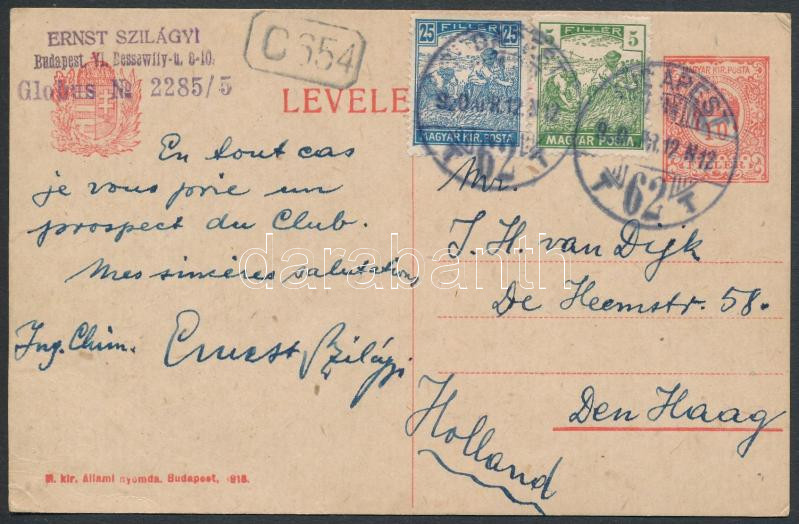 ERNST SZILÁGYI
Budapest, VI. Dessewffy-u. 8-10.
Globus № 2285/5
C 654
LEVELE
25 FILLER 25
MAGYAR KIR. POSTA
FILLER 5
MAGYAR POSTA
MAGYAR KIR. POSTA
FILLÉR
BUDAPEST
62
BUDAPEST
62
En tout cas
je vous prie un
prospect du Club.
Mes sincères salutations
Ing. Chim. Ernest Szilágyi
Mr.
J. H. van Dijk
De Heemstr. 58.
Den Haag
Holland
M. kir. állami nyomda. Budapest, 1918.
darabanth